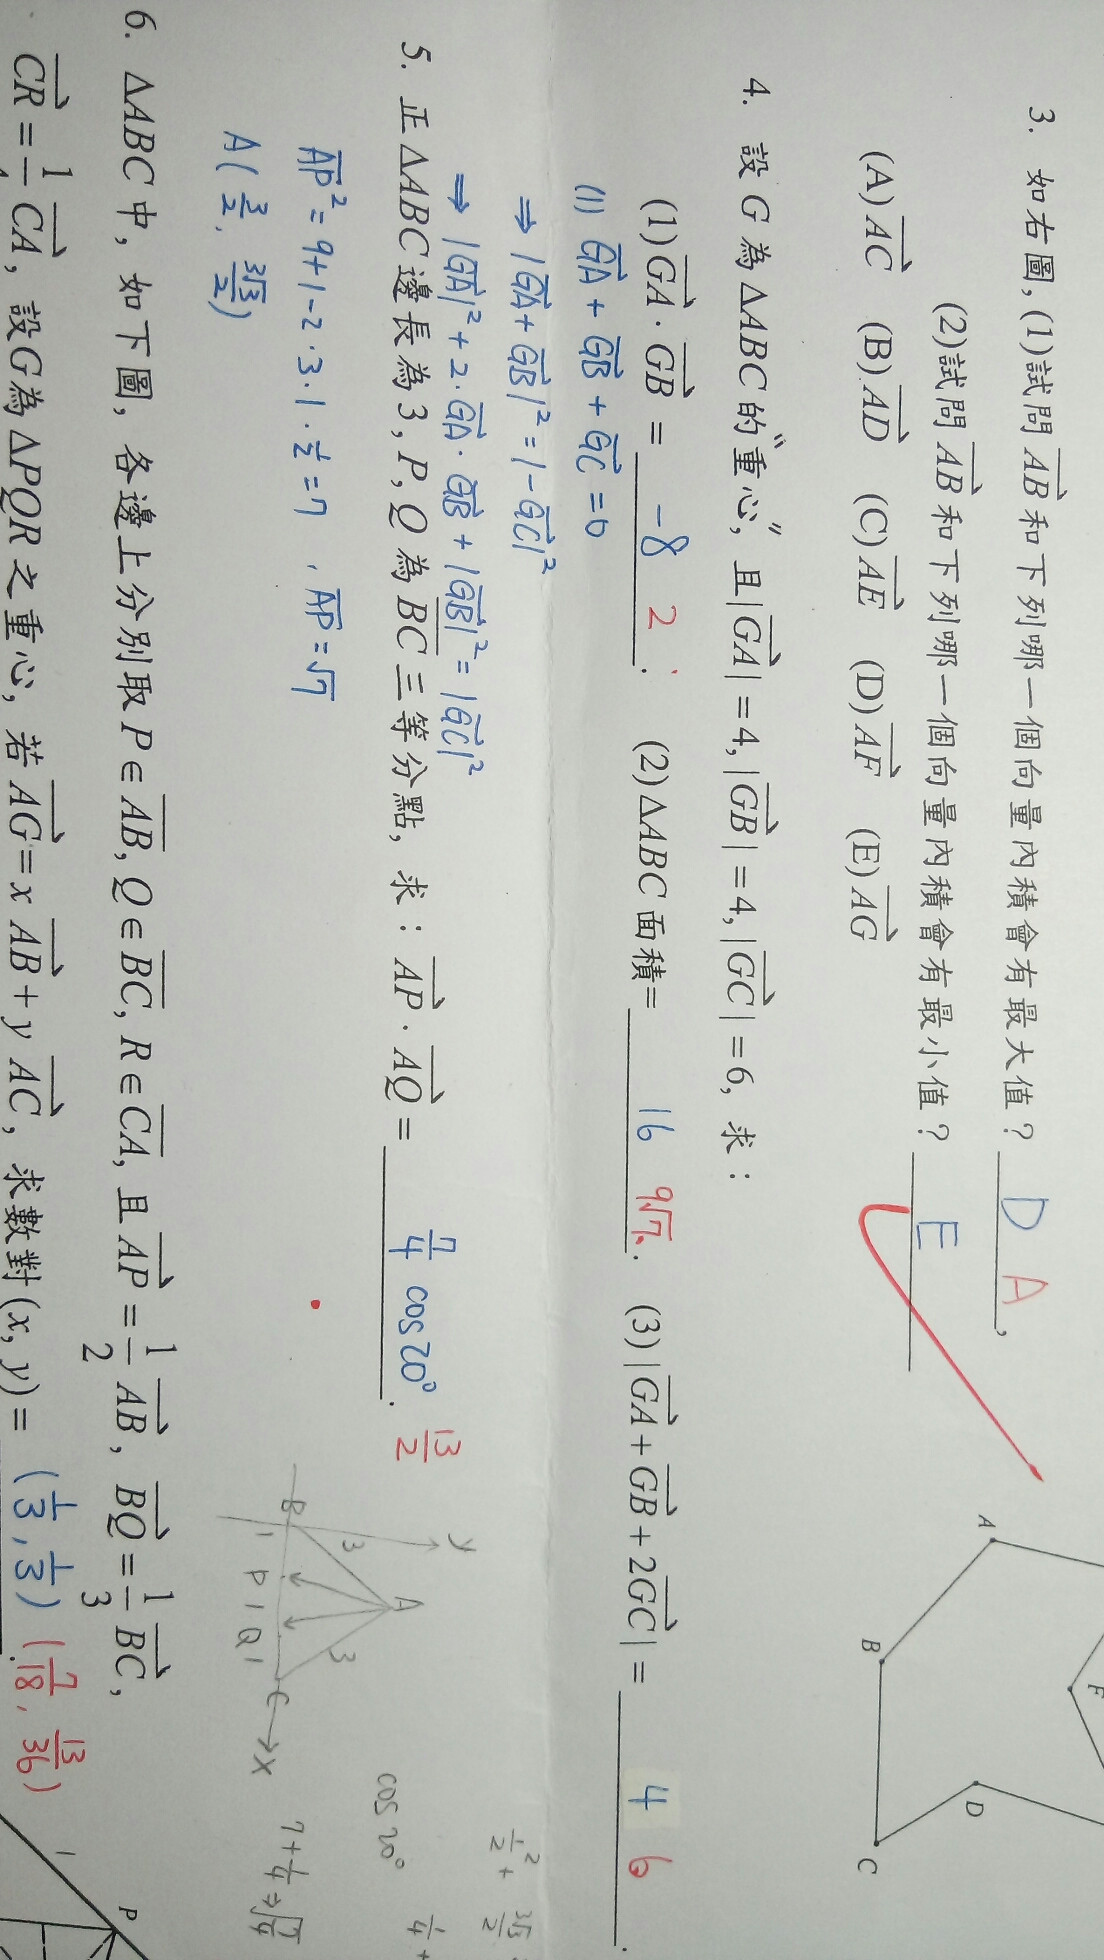 3. 如右圖, (1)試問 AB 和下列哪一個向量內積會有最大值？ D A ,
(2)試問 AB 和下列哪一個向量內積會有最小值？ E
(A) AC (B) AD (C) AE (D) AF (E) AG
A
B
C
D
F
4. 設 G 為 ΔABC 的〝重心〞, 且 |GA| = 4, |GB| = 4, |GC| = 6, 求：
(1) GA · GB = -8 2 . (2) ΔABC 面積= 16 9√7 . (3) |GA + GB + 2GC| = 4 6 .
(1) GA + GB + GC = 0
⇒ |GA + GB|² = |-GC|²
⇒ |GA|² + 2·GA·GB + |GB|² = |GC|²
5. 正 ΔABC 邊長為 3, P, Q 為 BC 三等分點, 求：AP · AQ = 7/4 cos20° . 13/2
AP² = 9+1-2·3·1·1/2 = 7 , AP = √7
A ( 3/2 , 3√3/2 )
y
A
3
3
B
1
P
1
Q
1
C
x
cos 20°
7+1/4
6. ΔABC 中, 如下圖, 各邊上分別取 P∈AB, Q∈BC, R∈CA, 且 AP = 1/2 AB, BQ = 1/3 BC,
CR = 1/4 CA, 設G為 ΔPQR 之重心, 若 AG = x AB + y AC, 求數對 (x, y) = (1/3, 1/3) . (7/18, 13/36)
1
P